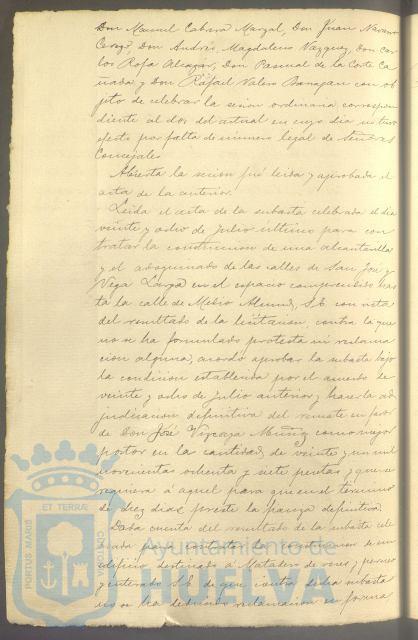 Don Manuel Cabrera Marzal, Don Juan Navarro
Don Andrés Magdaleno Vazquez, Don Car
los Rofa Alcazar, Don Pascual de la Corte Ca
ñada y Don Rafael Valero con ob
jeto de celebrar la sesion ordinaria correspon
diente al dos del actual en cuyo dia no tuvo
efecto por falta de número legal de Señores
Concejales
Abierta la sesion fué leida y aprobada el
acta de la anterior.
Leida el acta de la subasta celebrada el dia
veinte y ocho de Julio último para con
tratar la construccion de una alcantarilla
y el adoquinado de las calles de San José y
Vega Larga en el espacio comprendido has
ta la calle de S.E. con vista
del resultado de la licitacion, contra la que
no se ha formulado protesta ni reclama
cion alguna, acordó aprobar la subasta bajo
la condicion establecida por el acuerdo de
veinte y ocho de Julio anterior y hacer la ad
judicacion definitiva del remate en favor
de Don José Muñoz como mejor
postor en la cantidad de veinte y un mil
novecientas ochenta y siete pesetas y que se
requiera á aquel para que en el término
de diez dias preste la fianza definitiva.
Dada cuenta del resultado de la subasta cele
brada para contratar la construccion de un
edificio destinado á Matadero de reses,
y enterado S.E. de que contra dicha subasta
no se ha deducido reclamacion en forma
PORTUS MARIS
ET TERRÆ
CUSTODIA
Ayuntamiento de
HUELVA